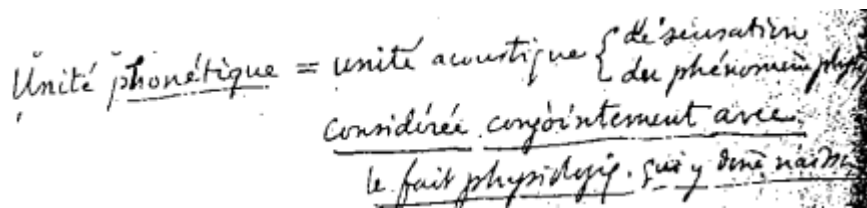 Unité phonétique = unité acoustique { de sensation
du phénomène phys
considérée conjointement avec
le fait physiologiq. qui y done naiss